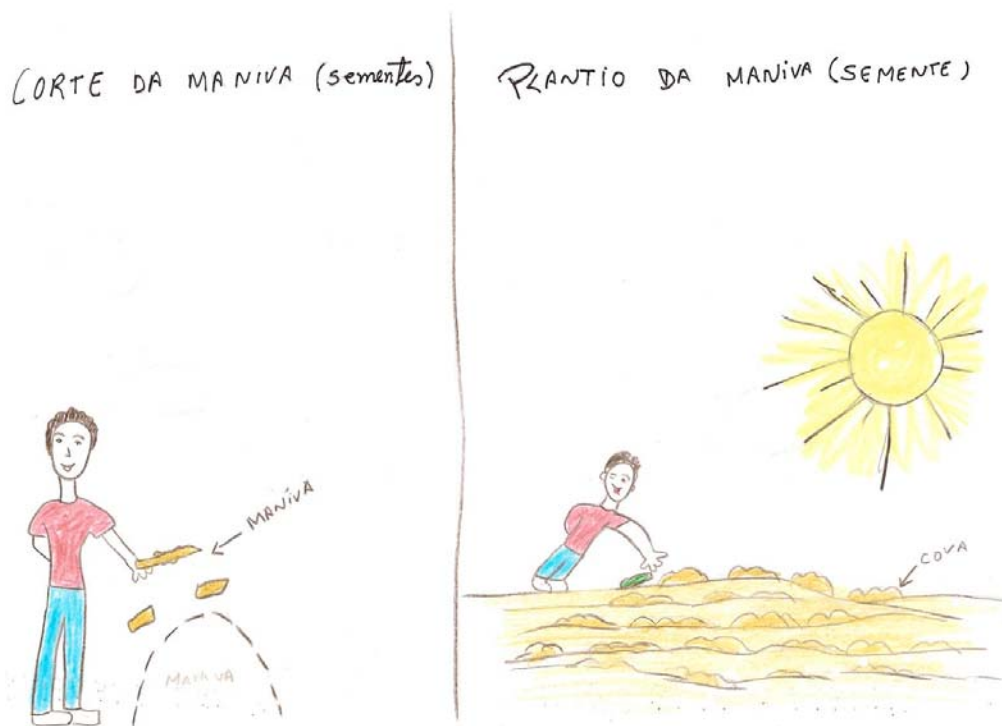 CORTE DA MANIVA (sementes)
MANIVA
MANIVA
PLANTIO DA MANIVA (SEMENTE)
COVA